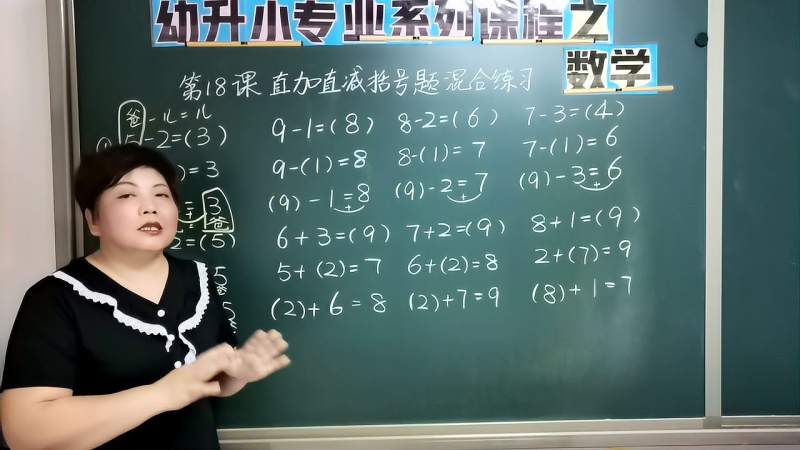 幼升小专业系列课程之
数学
第18课 直加直减括号题混合练习
爸-儿=儿
5-2=(3) 9-1=(8) 8-2=(6) 7-3=(4)
)=3 9-(1)=8 8-(1)=7 7-(1)=6
=3 (9)-1=8 (9)-2=7 (9)-3=6
爸
2=(5) 6+3=(9) 7+2=(9) 8+1=(9)
5 5+(2)=7 6+(2)=8 2+(7)=9
5 (2)+6=8 (2)+7=9 (8)+1=7